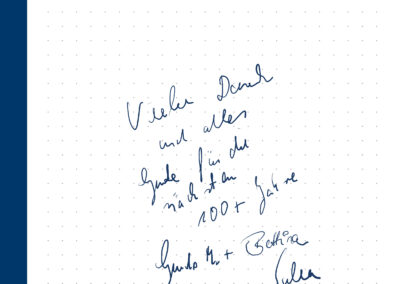 Vielen Dank
und alles
Gute für die
nächsten
100+ Jahre
+ Bettina